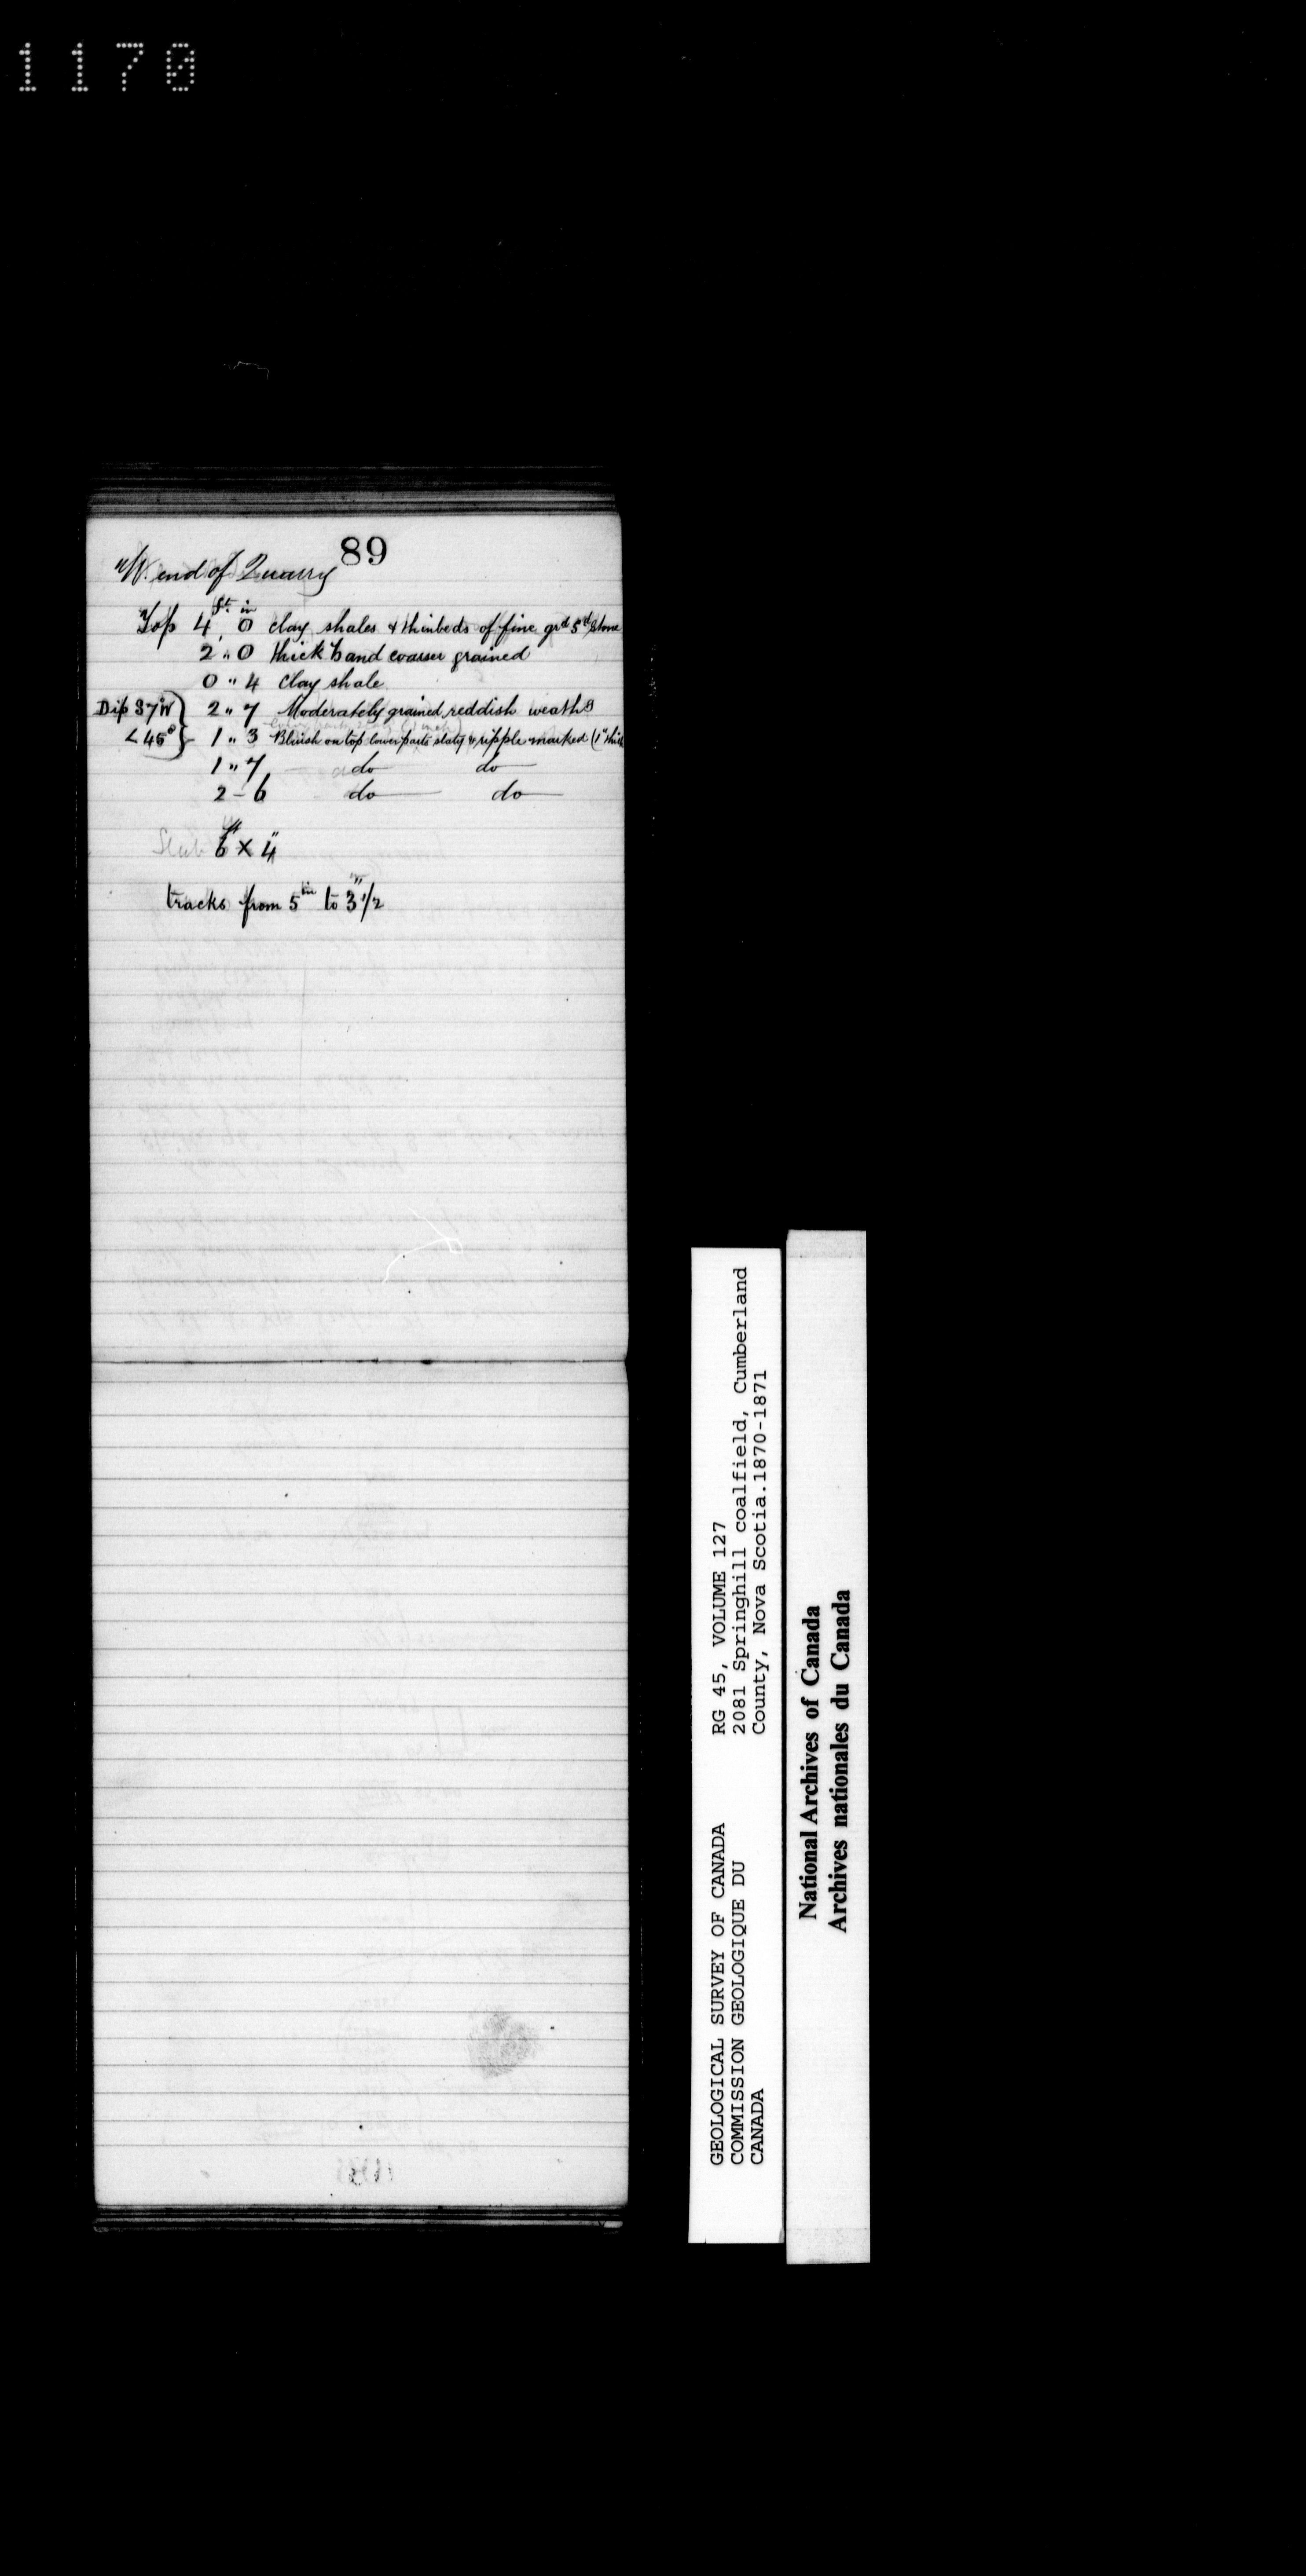 1170
89
W. end of Quarry
ft. in
Top 4 , 0 clay shales & thin beds of fine grd Sd Stone
2 " 0 thick band coarser grained
0 " 4 clay shale
Dip 37 W 2 " 7 Moderately grained reddish weathg
< 45° 1 " 3 Bluish on top lower parts slaty & ripple marked (1" thick
1 " 7 do do
2 - 6 do do
Slab 6" x 4"
tracks from 5 in to 3" 1/2
GEOLOGICAL SURVEY OF CANADA
COMMISSION GEOLOGIQUE DU
CANADA
RG 45, VOLUME 127
2081 Springhill coalfield, Cumberland
County, Nova Scotia.1870-1871
National Archives of Canada
Archives nationales du Canada